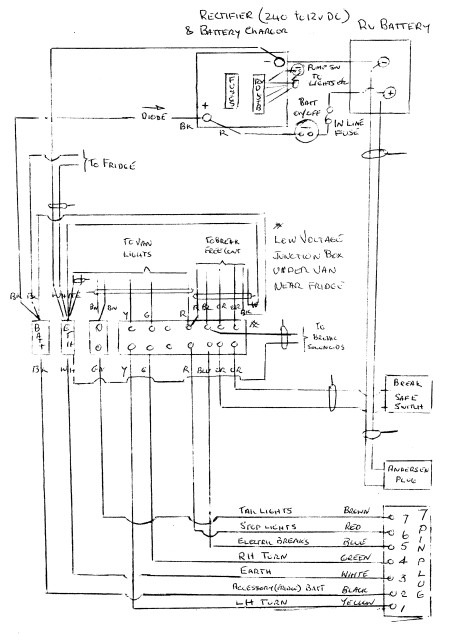 RECTIFIER (240 to 12v DC)
& BATTERY CHARGOR
RV BATTERY
FUSE
PUMP SW
TO
LIGHTS etc
BATT
ON/OFF
IN LINE
FUSE
DIODE
BK
R
TO FRIDGE
TO VAN
LIGHTS
TO BREAK
* LOW VOLTAGE
JUNCTION BOX
UNDER VAN
NEAR FRIDGE
WHITE
BN
BN
Y
G
R
BR
BAT +
TO
BRAKE
SOLENOIDS
BK
WH
GN
Y
G
R
BLU
OR
OR
BREAK
SAFE
SWITCH
ANDERSEN
PLUG
TAIL LIGHTS BROWN 7
STOP LIGHTS RED 6
ELECTRIC BREAKS BLUE 5
RH TURN GREEN 4
EARTH WHITE 3
BATT BLACK 2
LH TURN YELLOW 1
7 PIN PLUG